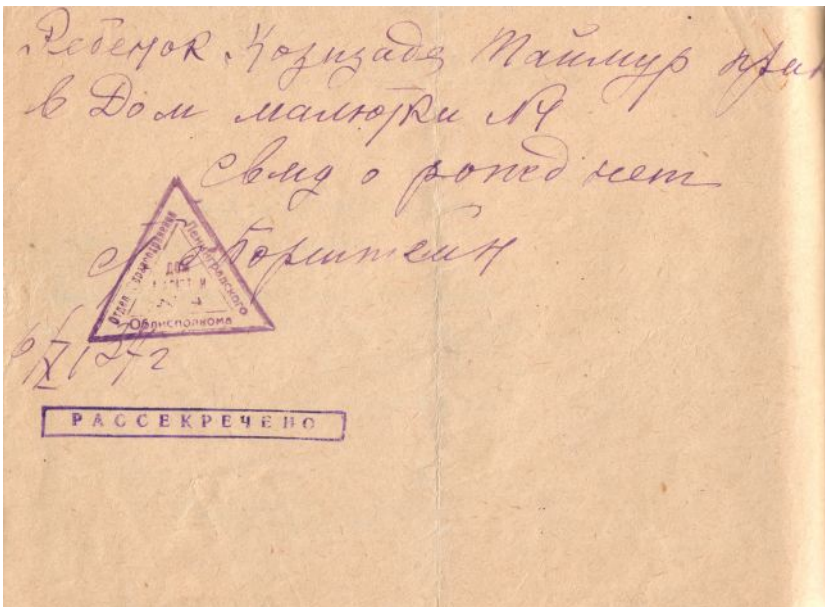 Ребенок Козизада Таймур
в Дом малютки №1
свид о рожд нет
Борштейн
Отдел здравоохранения
Ленинградского
Облисполкома
ДОМ
РАССЕКРЕЧЕНО